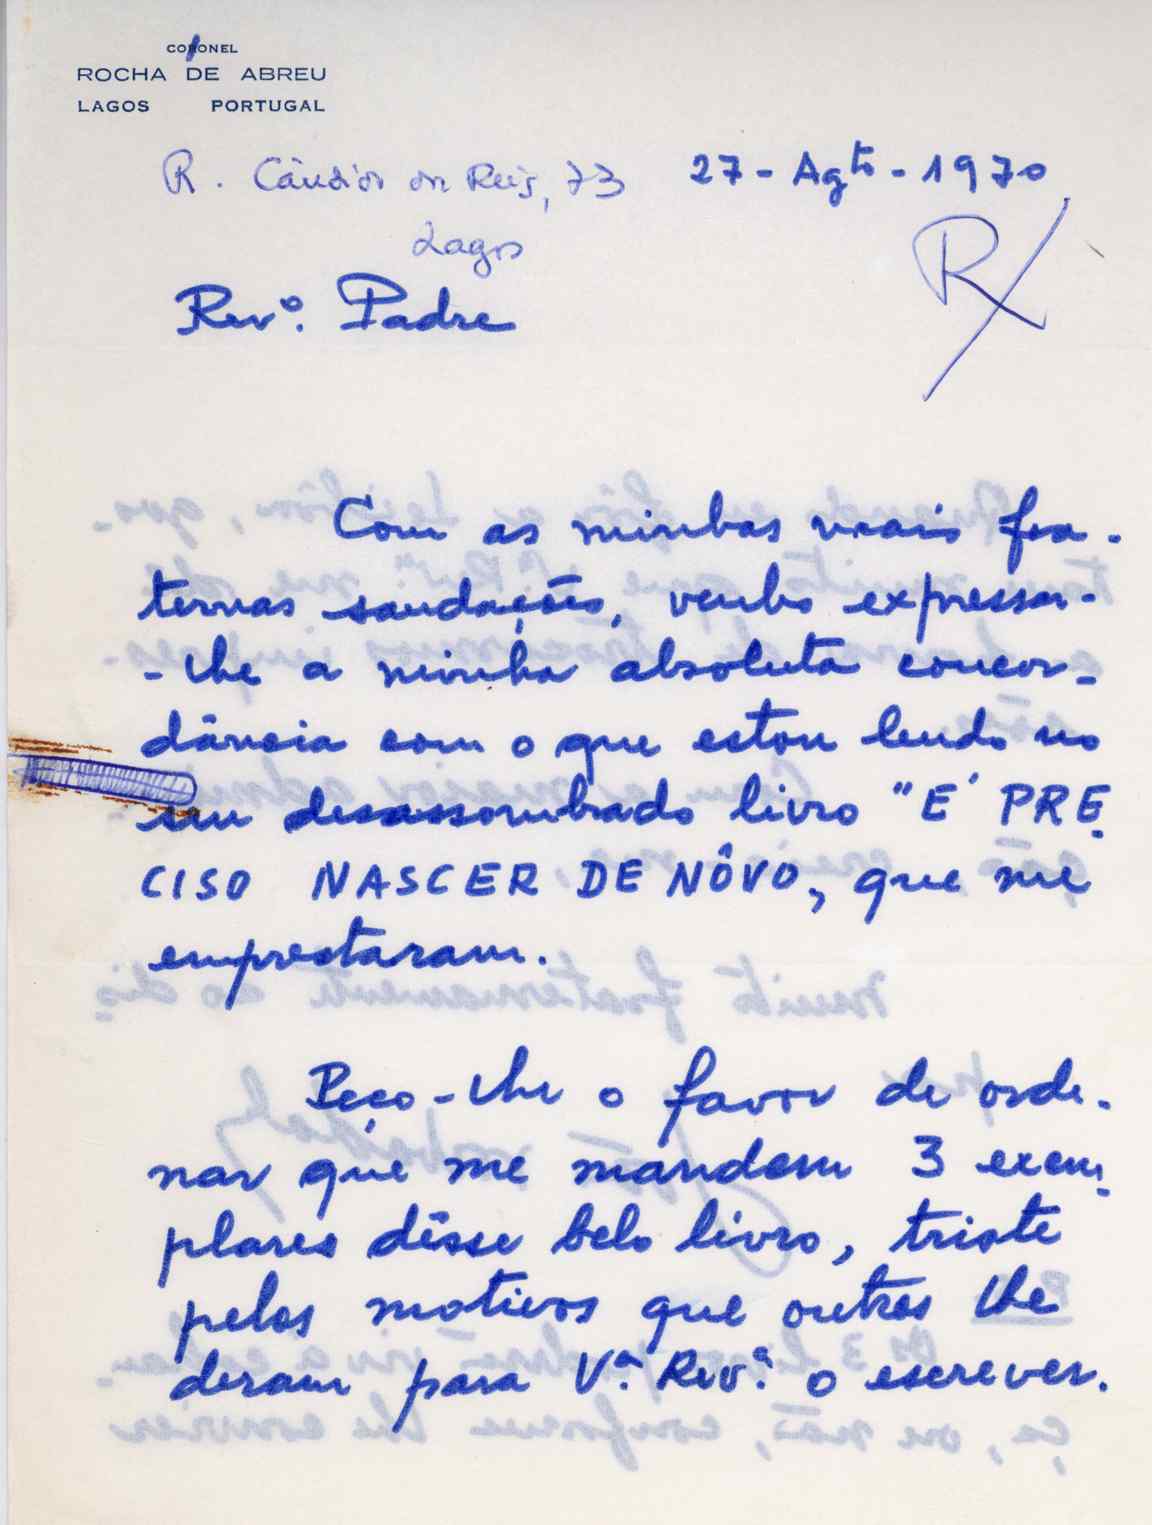 CORONEL
ROCHA DE ABREU
LAGOS PORTUGAL
R. Cândido dos Reis, 73 27-Agto-1970
Lagos
R
Revº. Padre
Com as minhas mais fra-
ternas saudações, venho expressar-
-lhe a minha absoluta concor-
dância com o que estou lendo no
seu desassombrado livro "É PRE
CISO NASCER DE NÔVO, que me
emprestaram.
Peço-lhe o favor de orde-
nar que me mandem 3 exem
plares dêsse belo livro, triste
pelos motivos que outros lhe
deram para Vª. Revª. o escrever.